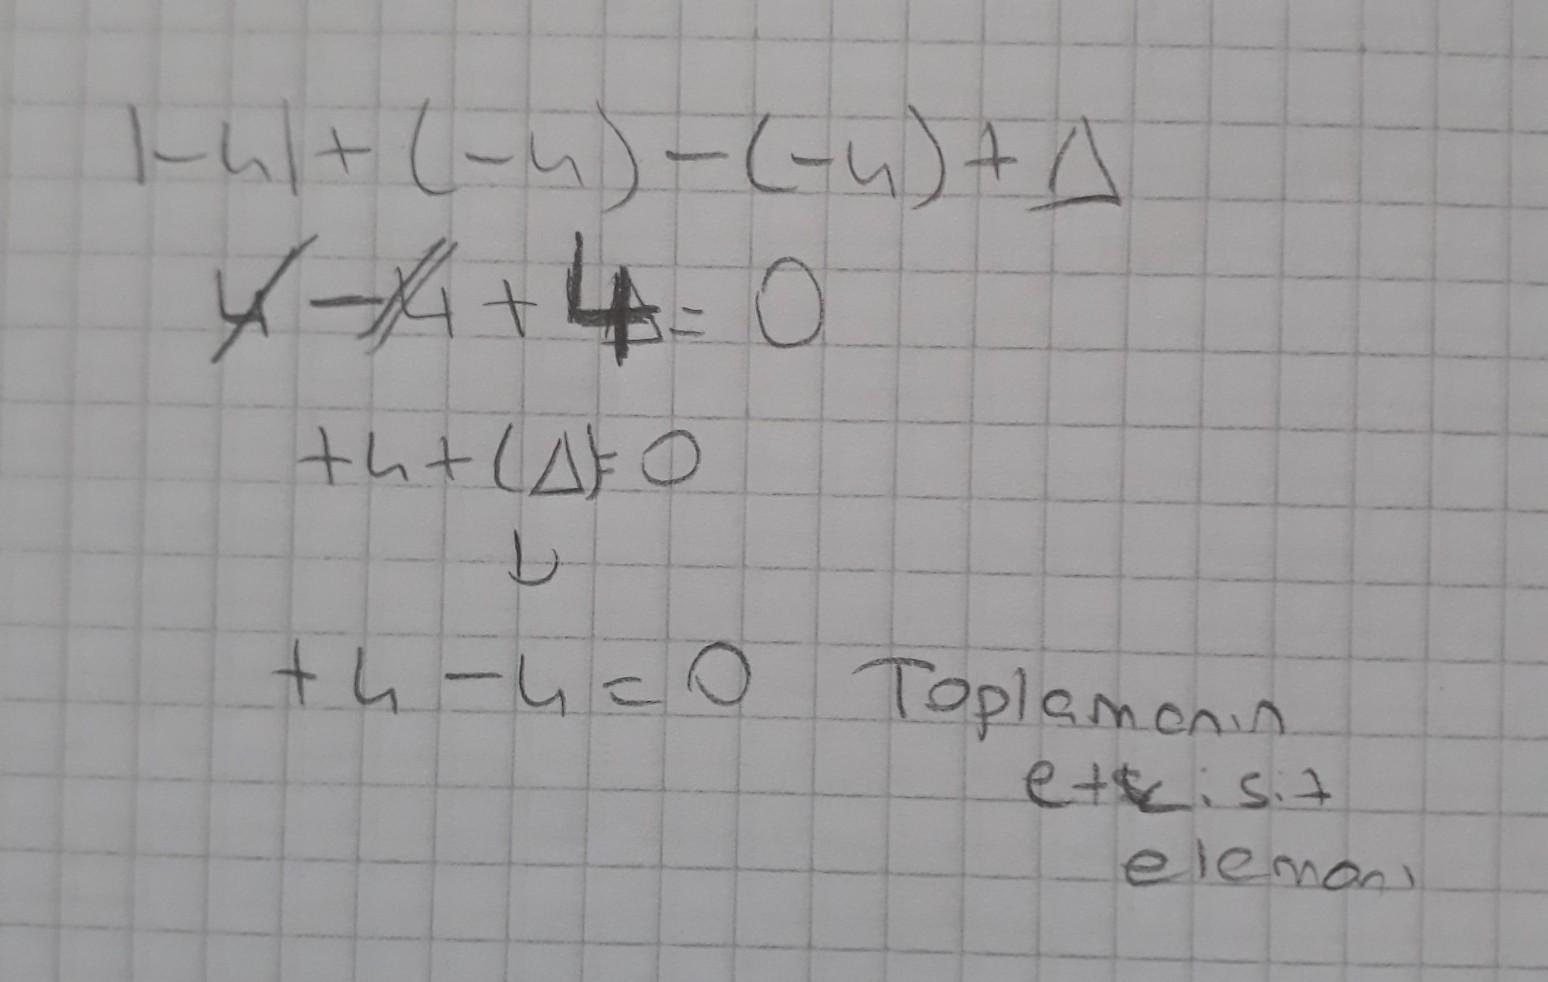 |-4|+(-4)-(-4)+Δ
4-4+4Δ=0
+4+(Δ)=0
+4-4=0 Toplamanın
etkisit
elemanı